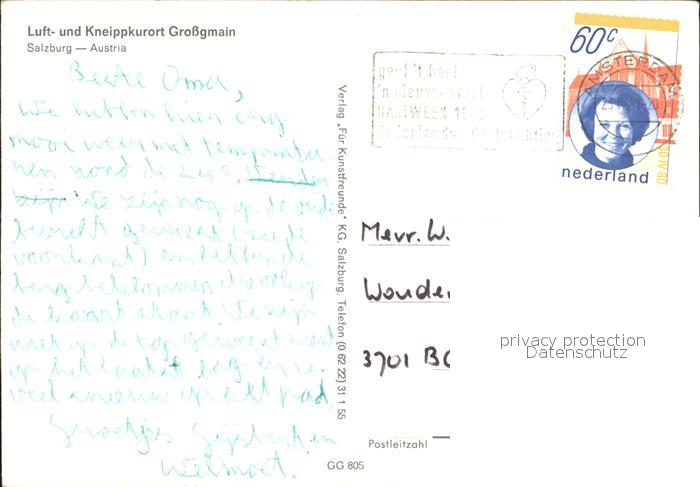 Luft- und Kneippkurort Großgmain
Salzburg — Austria
Beste Oma,
We hebben hier erg
mooi weer met temperatu-
ren rond de 25°.
We zijn nog op de oude
burcht geweest (zie de
voorkant) en hebben de
berg beklommen die ook op
de kaart staat. We zijn
niet op de top geweest want
op het laatst lag er te
veel sneeuw op het pad.
Groetjes Gijsbert en
Welmoet.
Verlag „Für Kunstfreunde" KG, Salzburg, Telefon (0 62 22) 31 1 55
GG 805
geef 't hart
'n nieuwe start
HARTWEEK
Nederlandse Hartstichting
AMSTERDAM
60c
nederland
30 IV 80
Mevr. W.
3701 BC
Postleitzahl
privacy protection
Datenschutz